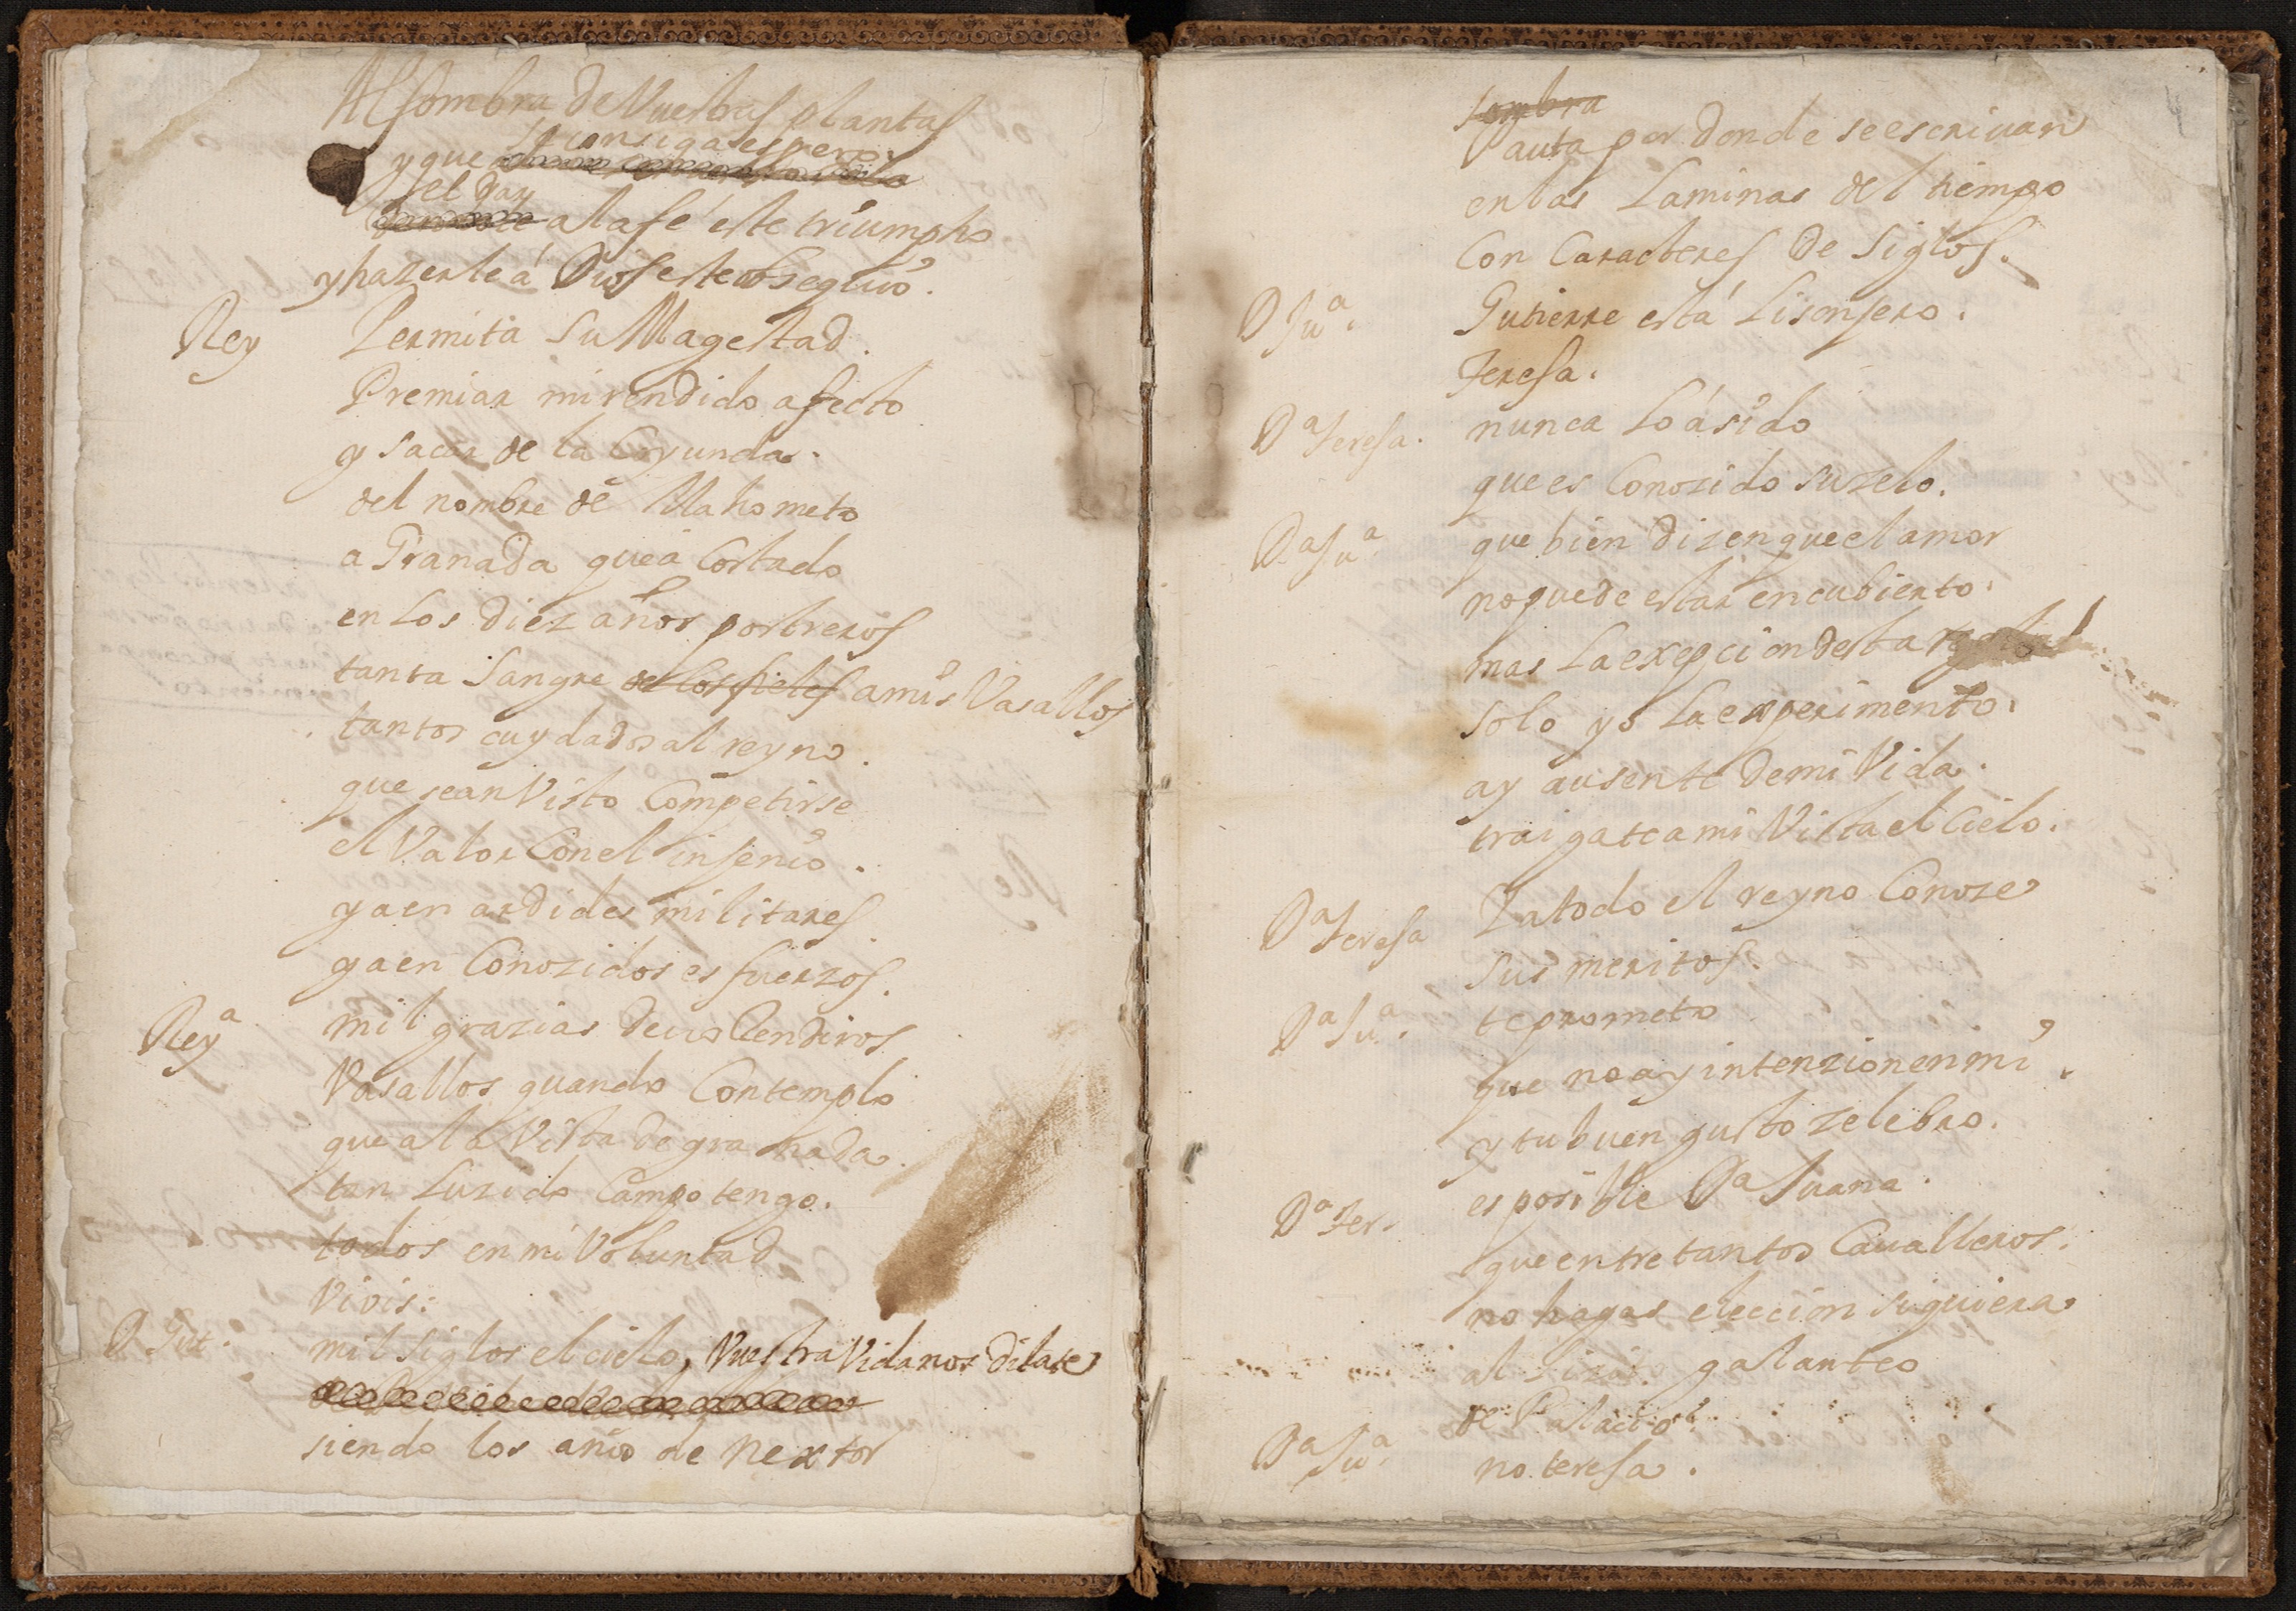 Al sombra de Vuestras plantas
se consiga espero
y que
el Dar
a la fé este triumpho
y hazerle á Dios este obsequio.
Rey Permita Su Magestad
Premiar mi rendido afecto
y sacar de la Coyunda.
del nombre de Mahometo
a Granada que á Costado
en Los diez años postreros
tanta Sangre de los fieles a mis Vasallos
tantos cuydados al reyno.
que sean Visto Competirse
el Valor Con el injenio.
ya en ardides militares
ya en Conozidos esfuerzos.
Reyª mil grazias devo Rendiros
Vasallos quando Contemplo
que a la Vista de granada.
tan Luzido Campo tengo.
todos en mi Voluntad
Vivis:
D Gut. mil siglos el cielo, Vuestra Vida nos dilate
siendo los años de Nextor
sombra
Pauta por donde se escrivan
en las Laminas del tiempo
Con Caracteres de Siglos.
D Juª. Gutierre está Lisonjero.
Teresa.
Dª Teresa. nunca Lo á sido
que es Conozido su zelo.
Dª Juª que bien dizen que el amor
no puede estar encubierto.
mas La exepcion desta regla
solo yo La experimento.
ay ausente de mi Vida.
traigate a mi Vista el Cielo.
Dª Teresa Ya todo el reyno Conoze
sus meritos.
Dª Juª. te prometo
que no ay intenzion en mi.
y tu buen gusto zelebro.
Dª Ter. es posible Dª Juana.
que entre tantos Cavalleros.
no hagas eleccion siquiera
al galanteo
de Palacio.
Dª Juª no teresa.